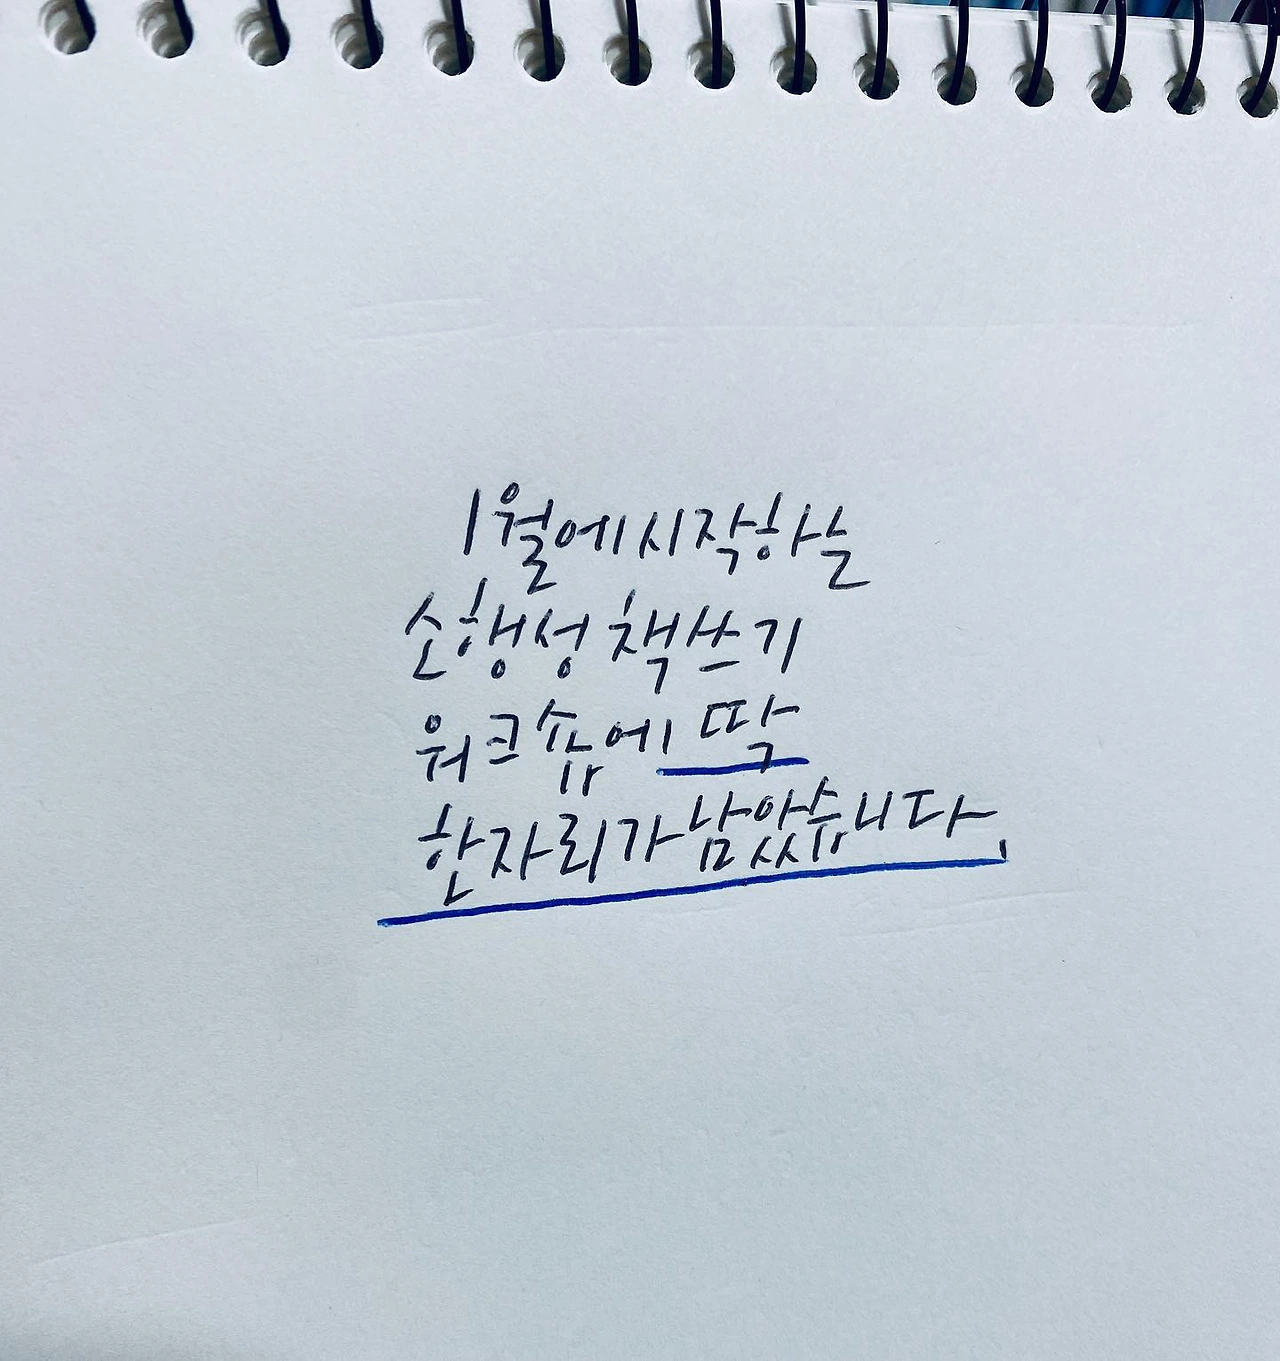 1월에 시작하는
소행성 책쓰기
워크숍에 딱
한자리가 남았습니다.